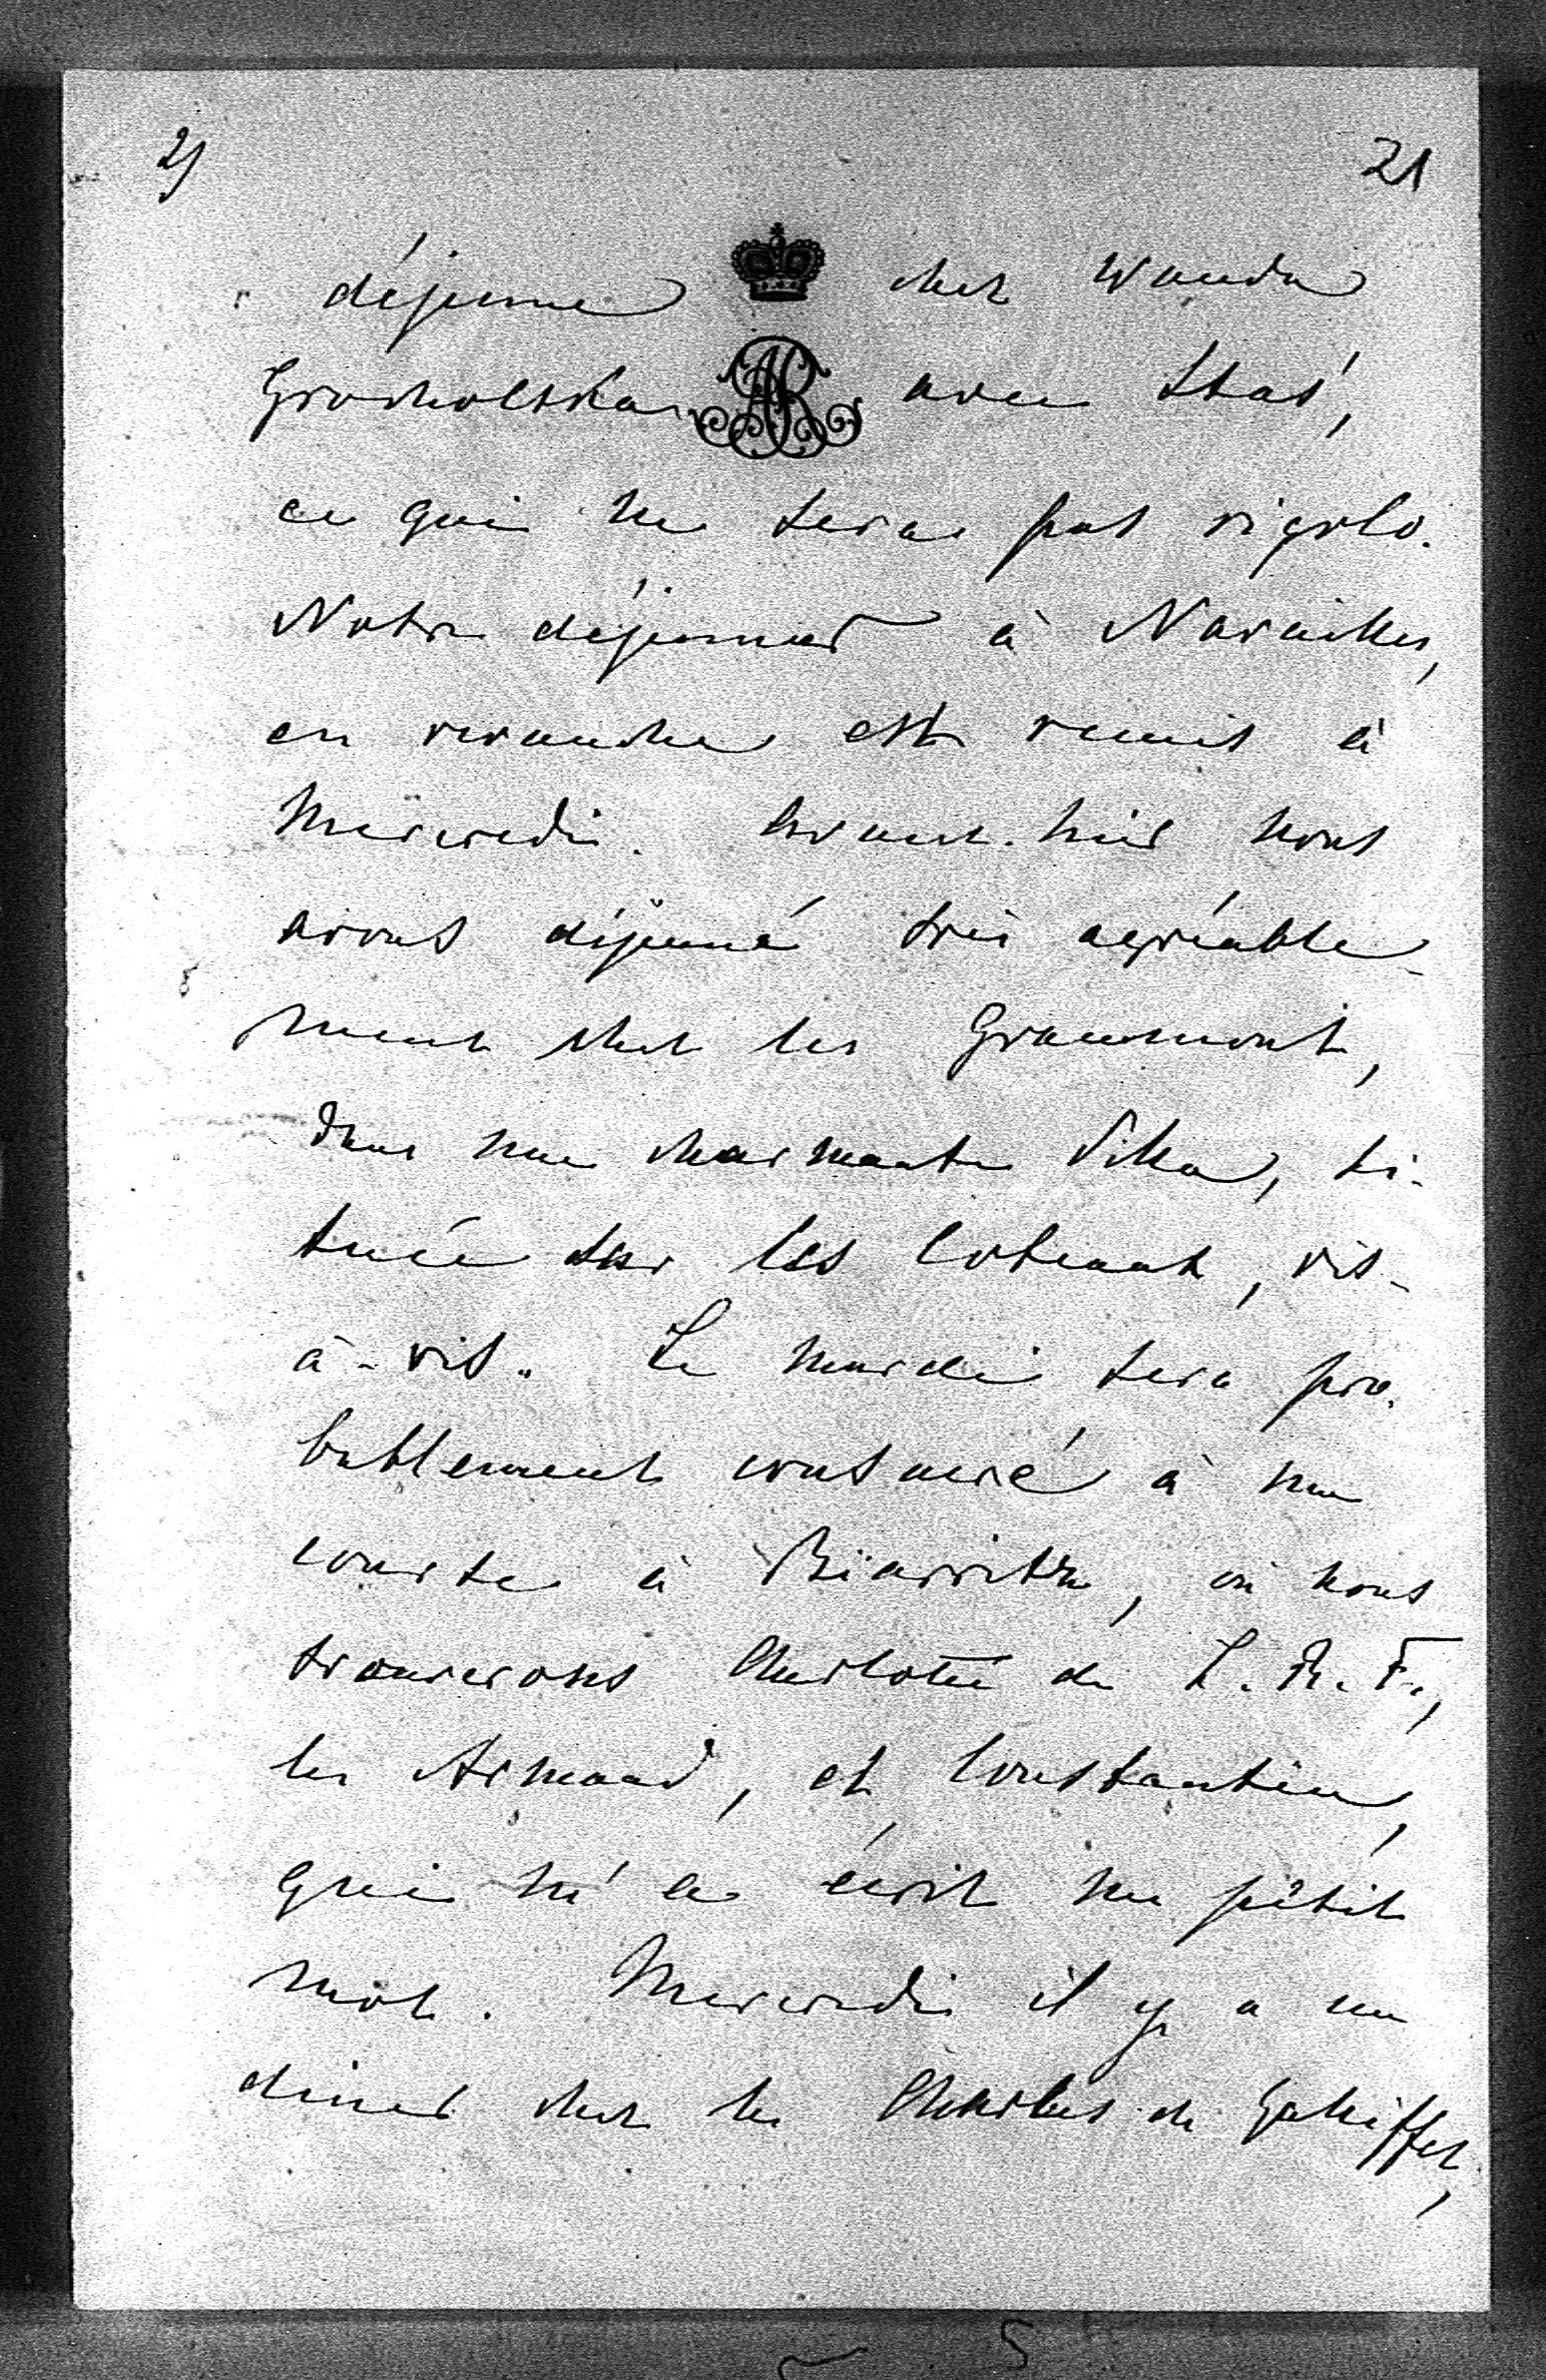 2)
21
déjeune chez Wanda
Grocholska avec Stas',
ce qui ne sera pas rigolo.
Notre déjeuner à Navailles,
en revanche est remis à
Mercredi. Avant-hier nous
avons déjeuné très agréable-
ment chez les Grammont,
dans une charmante Villa, si-
tuée sur les Coteaux, vis-
à-vis. Le mardi sera pro-
bablement consacré à une
course à Biarritz, où nous
trouverons Charlotte de L. R. F.,
les Armand, et Constantin,
qui m'a écrit un petit
mot. Mercredi il y a un
diner chez les Charles de Galiffet,